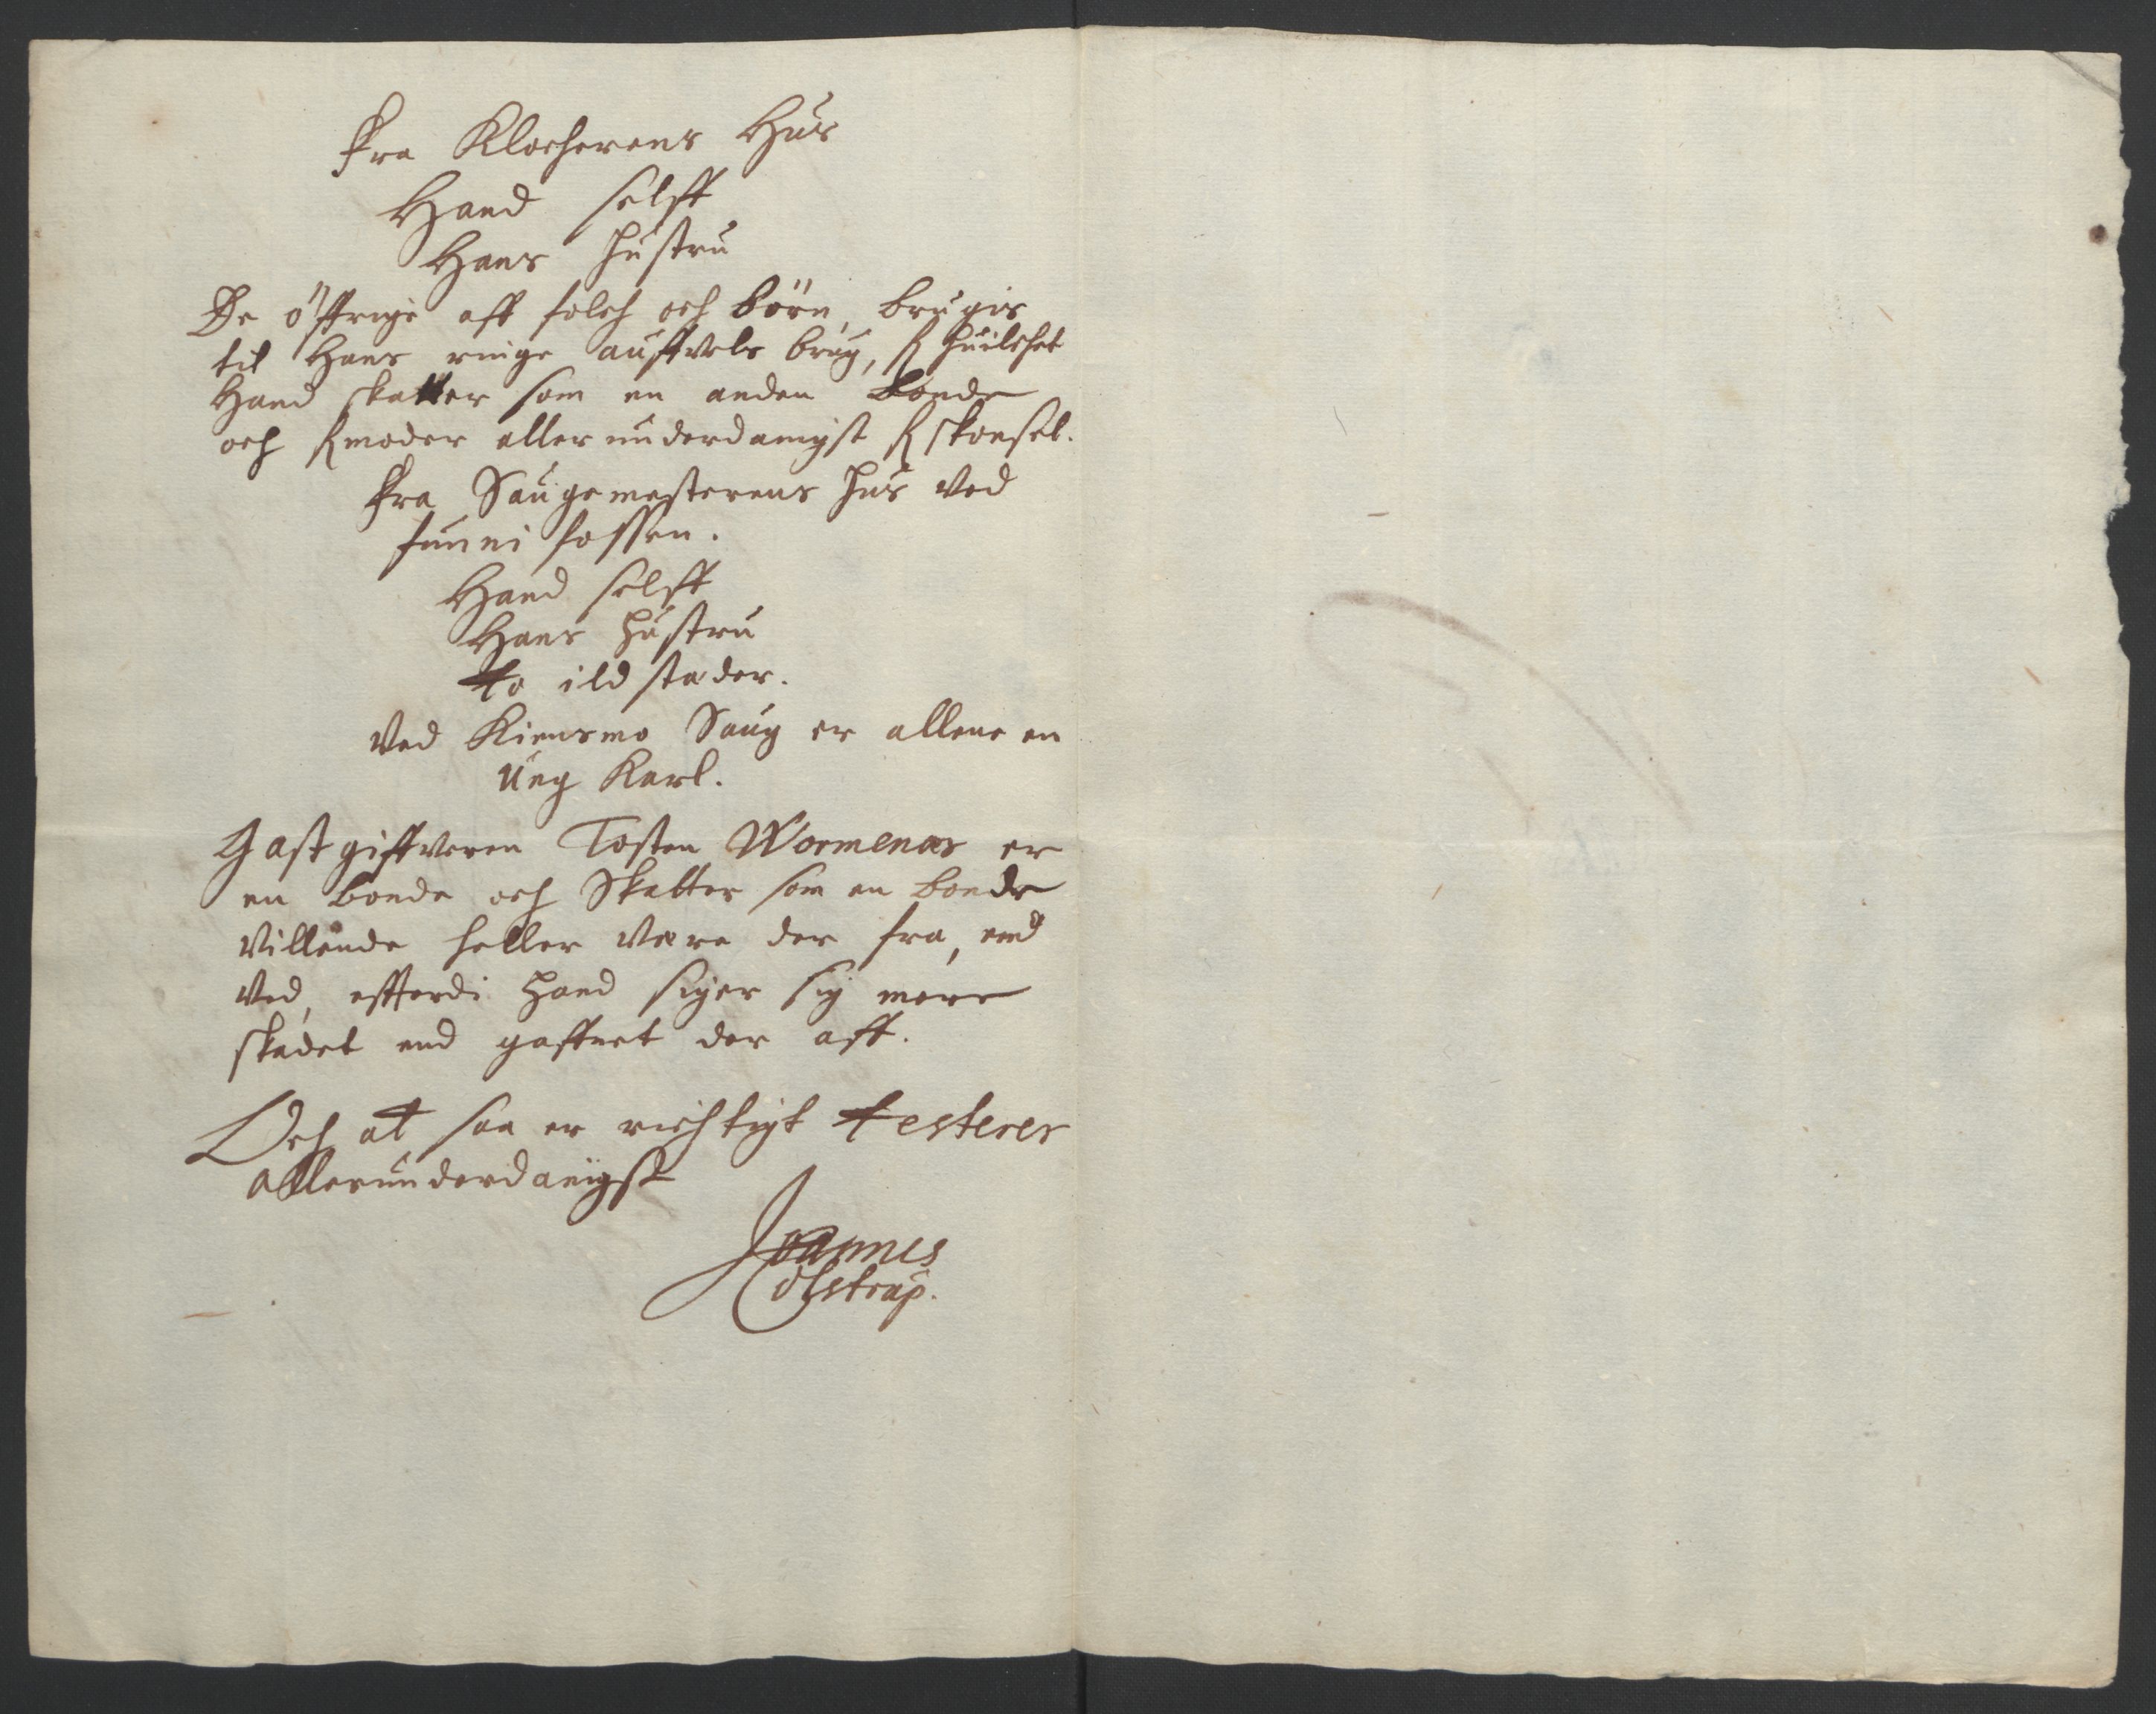 Fra Klocherens Hus
Hand selft
Hans hustru
De öffrige aff folch och börn, brugis
til Hans ringe auffvels brug, huilchet
Hand skatter som en anden Bonde
och allerunderdanigst
Fra Saugemesterens hus ved
funni fossen.
Hand selft
Hans hustru
to ildstæder.
Ved Kiensmo Saug er allene en
Ung Karl.
Gastgiffveren Tosten Wormenæs er
en bonde och Skatter som en bonde
Villende heller være der fra, end
ved, efterdi hand siger sig mere
skadet end gaffnet der aff.
Och at saa er richtigt testerer
allerunderdanigst
Joannes
Colstrup.